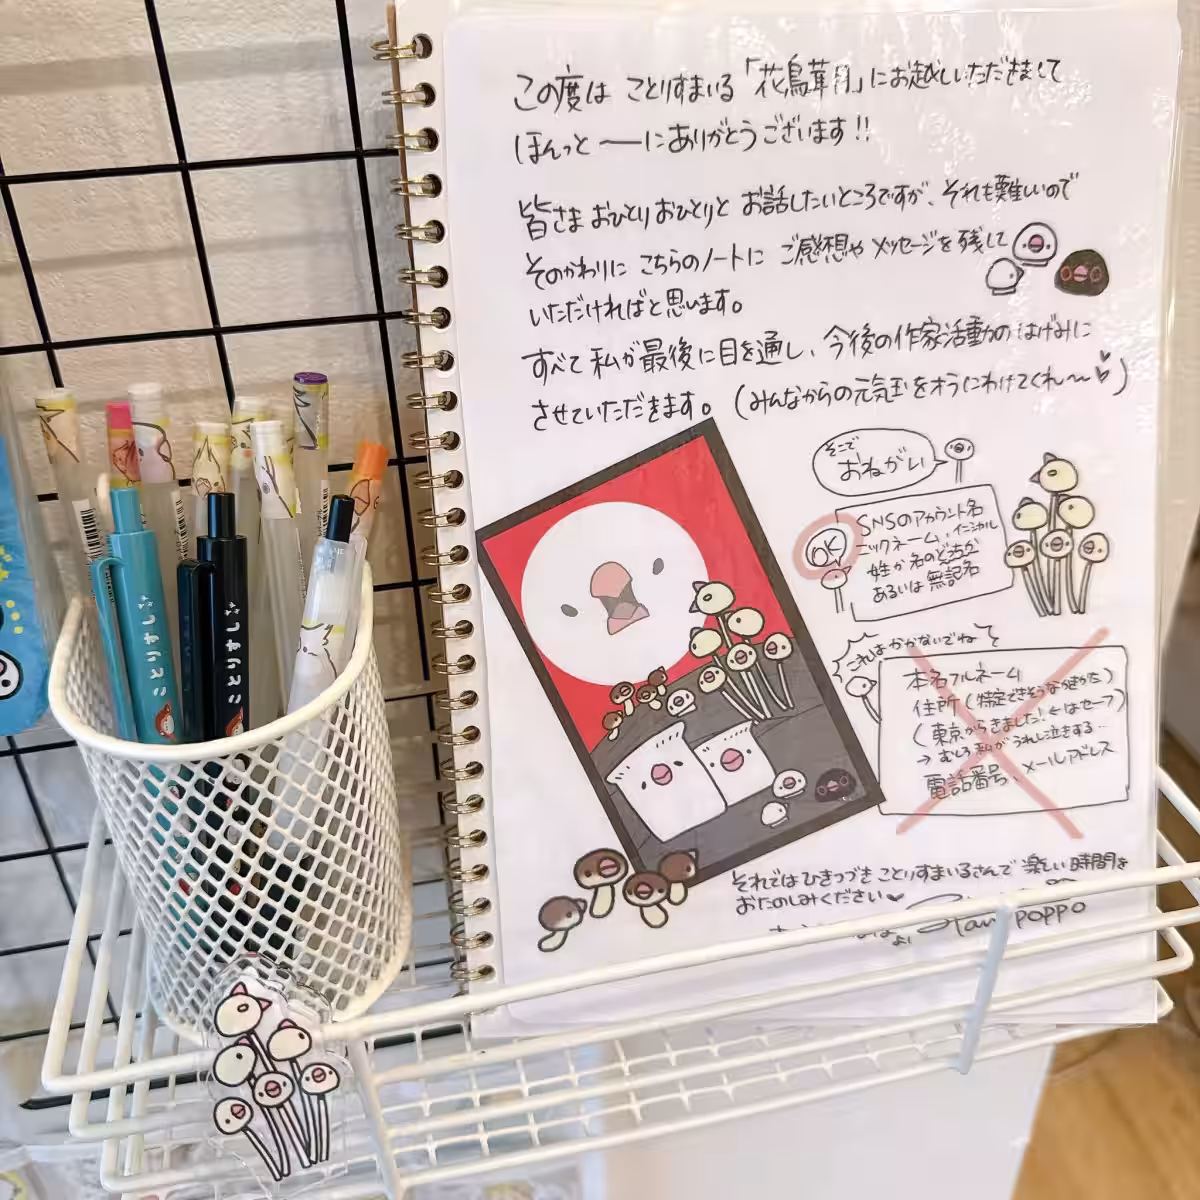 この度は ことりすまいる「花鳥茸月」にお越しいただきまして
ほんっと――にありがとうございます!!
皆さま おひとりおひとりと お話したいところですが、それも難しいので
そのかわりに こちらのノートに ご感想や メッセージを残して
いただければと思います。
すべて 私が最後に目を通し、今後の作家活動の はげみに
させていただきます。(みんなからの元気玉をオラにわけてくれ〜♥)
そこで
おねがい
OK
SNSのアカウント名
ニックネーム、イニシャル
姓か名のどちらか
あるいは 無記名
これはかかないでね
本名フルネーム
住所(特定できそうな細かな)
(東京からきました!←はセーフ)
→むしろ私がうれし泣きする…
電話番号、メールアドレス
それではひきつづき ことりすまいるさんで 楽しい時間を
おたのしみください♥
poppo
ことりすい
ことりすい